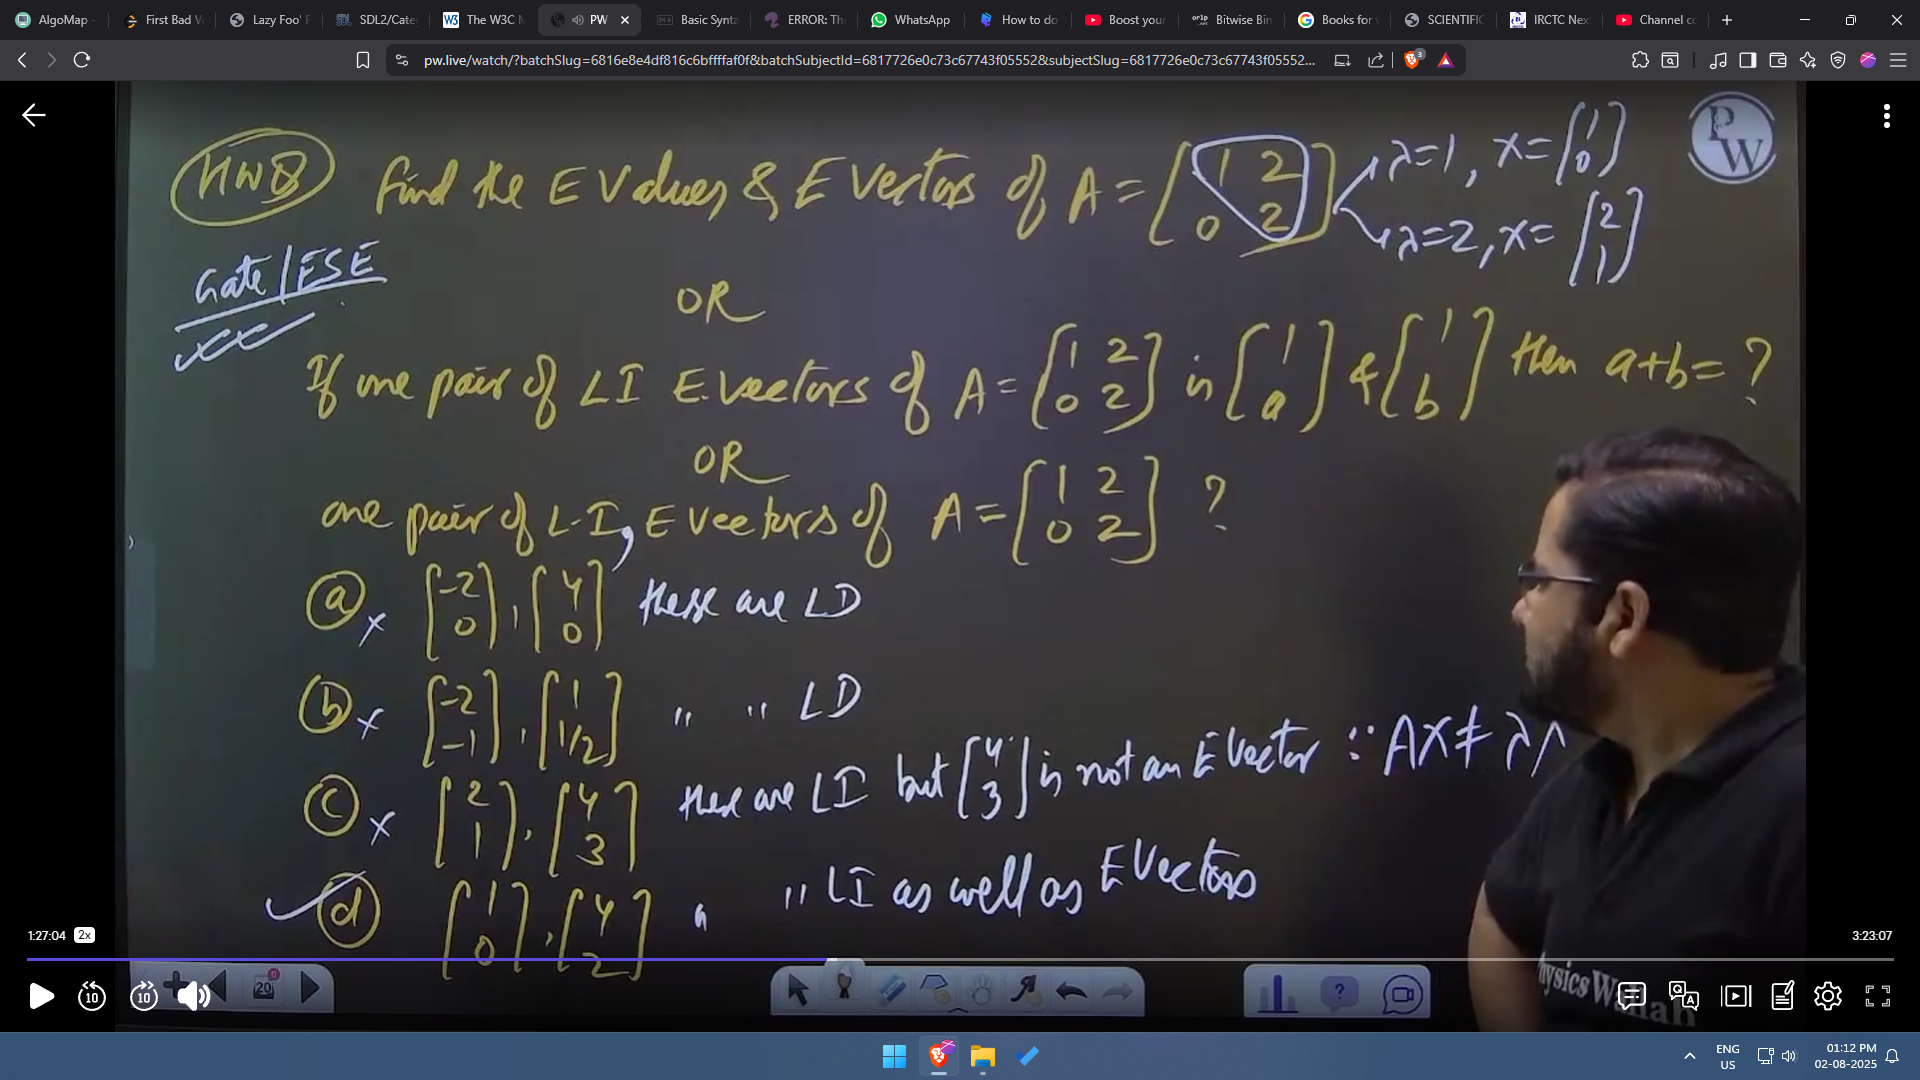 AlgoMap -
First Bad V
Lazy Foo' P
SDL2/Cate
The W3C M
PW
Basic Synta
ERROR: The
WhatsApp
How to do
Boost your
Bitwise Bin
Books for v
SCIENTIFIC
IRCTC Nex
Channel co
pw.live/watch/?batchSlug=6816e8e4df816c6bffffaf0f&batchSubjectId=6817726e0c73c67743f05552&subjectSlug=6817726e0c73c67743f05552...
HWQ Find the E Values & E Vectors of A = [1 2; 0 2] λ=1, X=[1; 0]
λ=2, X=[2; 1]
PW
Gate/ESE
OR
If one pair of LI E.Vectors of A = [1 2; 0 2] is [1; a] & [1; b] then a+b=?
OR
one pair of L.I, E Vectors of A = [1 2; 0 2] ?
(a) × [-2; 0], [4; 0] these are LD
(b) × [-2; -1], [1; 1/2] " " LD
(c) × [2; 1], [4; 3] these are LI but [4; 3] is not an E Vector ∵ AX ≠ λ
(d) [1; 0], [4; 2] " " LI as well as E Vectors
1:27:04 2x
3:23:07
10
10
20
0
Physics Wallah
ENG
US
01:12 PM
02-08-2025